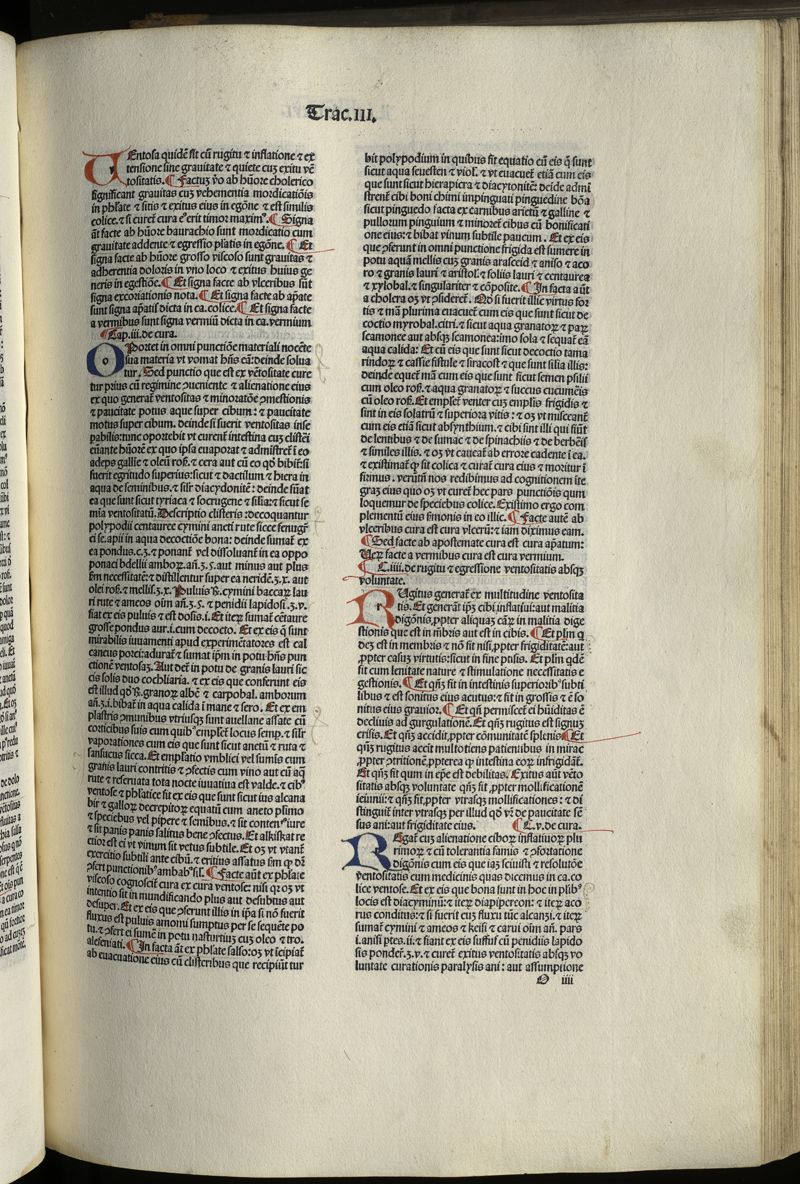 Trac. III.
VEntosa quidē fit cū rugitu ⁊ inflatione ⁊ ex
tensione sine grauitate ⁊ quiete cuꝫ exitu vē
tositatis. ¶ Factuꝫ ṽo ab hūore cholerico
significant grauitas cuꝫ vehementia mordicatiōis
in phſate ⁊ sitis ⁊ exitus eius in egōne ⁊ est similis
colice. ⁊ si curet cura eꝰ erit timor maximꝰ. ¶ Signa
āt facte ab hūore baurachio sunt mordicatio cum
grauitate addente ⁊ egressio pſatis in egōne. ¶ Et
signa facte ab hūore grosso viscoso sunt grauitas ⁊
adherentia doloris in vno loco ⁊ exitus huius ge
neris in egestiōe. ¶ Et signa facte ab vlceribus sūt
signa excoriationis nota. ¶ Et signa facte ab apate
sunt signa apatiſ dicta in ca. colice. ¶ Et signa facte
a vermibus sunt signa vermiū dicta in ca. vermium
¶ Cap. iii. de cura.
OPortet in omni punctiōe materiali nocēte
sua materia vt vomat hñs cā: deinde solua
tur. Sed punctio que est ex vētositate cure
tur prius cū regimine ꝯueniente ⁊ alienatione eius
ex quo generat ventositas ⁊ minoratōe ꝯmestionis
⁊ paucitate potus aque super cibum: ⁊ paucitate
motus super cibum. deinde si fuerit ventositas inse
pabilis: tunc oportebit vt curent intestina cuꝫ clistēi
euānte hūorē ex quo ipsa euaporat ⁊ admistreē i eo
adeps galliē ⁊ oleū roſ. ⁊ cera aut cū eo qd̄ bibit̄: si
fuerit egritudo superius: sicut ⁊ dactilum ⁊ hiera in
aqua de seminibus. ⁊ silr̄ diacydonitē: deinde sūat
ea que sunt sicut tyriaca ⁊ socrugene ⁊ silia: ⁊ sicut se
mīa ventositatū. Descriptio clisteris: decoquantur
polypodii centauree cymini aneti rute sicce fenugr̄
ci ſe. apii in aqua decoctiōe bona: deinde sumat̄ ex
ea pondus. c. ʒ. ⁊ ponant̄ vel dissoluant̄ in ea oppo
ponaci bdellii amboꝝ. añ. ʒ. s. aut minus aut plus
ẜm necessitatē: ⁊ distillentur super ea neridē. ʒ. x. aut
olei roſ. ⁊ mellis. ʒ. x. Puluis ℞. cymini baccaꝝ lau
ri rute ⁊ ameos oīm añ. ʒ. s. ⁊ penidii lapidosi. ʒ. v.
fiat ex eis puluis ⁊ est dosis. i. Et iteꝝ sumat cētaure
grosse pondus aur. i. cum decocto. Et ex eis q̄ sunt
mirabilis iuuamenti apud experimētatores est cal
caneus porci: adurat̄ ⁊ sumat ipm̄ in potu hñs pun
ctionē ventosaꝫ. Aut det̄ in potu de granis lauri sic
cis solis duo cochliaria. ⁊ ex eis que conferunt eis
est illud qd̄ ℞. granoꝝ albē ⁊ carpobal. amborum
añ. ʒ. i. bibat̄ in aqua calida i mane ⁊ sero. Et ex em
plastris ꝯmunibus vtriusqꝫ sunt auellane assate cū
corticibus suis cum quibꝰ emplet̄ locus semp. ⁊ silr̄
vaporationes cum eis que sunt sicut anetū ⁊ ruta ⁊
sansucus sicca. Et emplatio vmblici vel sumis cum
granis lauri contritis ⁊ ꝯfectis cum vino aut cū aq̄
rute ⁊ reseruata tota nocte iuuatiua est valde. ⁊ cibꝰ
ventose ⁊ phſatice sit ex eis que sunt sicut ius alcana
bir ⁊ galloꝝ decrepitoꝝ equatū cum aneto plimo
⁊ speciebus vel pipere ⁊ semibus. ⁊ sit contenꝰ iure
⁊ sit panis panis salitus bene ꝯfectus. Et alkiskat re
ctior est ei vt vinum sit vetus subtile. Et oʒ vt vtant̄
exercitio subtili ante cibū. ⁊ eritius assatus sīm q̄ dr̄
ꝯfert punctionibꝰ ambabꝰ sil. ¶ Facte aūt ex phſate
viscoso cognoscit̄ cura ex cura ventose: nisi qꝫ oʒ vt
intentio sit in mundificando plus aut desubtus aut
desuper. Et ex eis que ꝯferunt illis in ip̄a si nō fuerit
fluxus est puluis amomi sumptus per se sequēte po
tu. ⁊ ꝯfert ei sumē in potu nasturtiuꝫ cuꝫ oleo ⁊ tro.
alefeuiati. ¶ In facta āt ex phſate salso: oʒ vt icipiat̄
ab euacuatione eius cū clisteribus que recipiūt tur
bit polypodium in quibus sit equatio cū eis q̄ sunt
sicut aqua seuesten ⁊ viol. ⁊ vt euacuet̄ etiā cum eis
que sunt sicut hierapicra ⁊ diacytonitē: deīde admī
strent̄ cibi boni chimi impinguati pinguedine bōa
sicut pinguedo facta ex carnibus arietū ⁊ galline ⁊
pullorum pinguium ⁊ minoret̄ cibus cū bonificati
one eius: ⁊ bibat vinum subtile paucum. Et ex eis
que ꝯferunt in omni punctione frigida est sumere in
potu aquā mellis cuꝫ granis araseeid ⁊ aniso ⁊ aco
ro ⁊ granis lauri ⁊ aristol. ⁊ foliis lauri ⁊ centaurea
⁊ xylobal. ⁊ singulariter ⁊ cōposite. ¶ In facta aūt
a cholera oʒ vt ꝯsideret̄. Qd̄ si fuerit illic virtus for
tis ⁊ mā plurima euacuet̄ cum eis que sunt sicut de
coctio myrobal. citri. ⁊ sicut aqua granatoꝝ ⁊ paꝝ
scamonee aut absqꝫ scamonea: imo sola ⁊ sequat̄ eā
aqua calida: Et cū eis que sunt sicut decoctio tama
rindoꝝ ⁊ cassie fistule ⁊ siracost ⁊ que sunt silia illis:
deinde equet̄ mā cum eis que sunt sicut semen psilii
cum oleo roſ. ⁊ aqua granatoꝝ ⁊ succus cucumēis
cū oleo roſ. Et emplet̄ venter cuꝫ emplis frigidis ⁊
sint in eis solatrū ⁊ superiora vitis: ⁊ oʒ vt misceant̄
cum eis etiā sicut absynthium. ⁊ cibi sint illi qui fiūt
de lentibus ⁊ de sumac ⁊ de spinachiis ⁊ de berbeīs
⁊ similes illis. ⁊ oʒ vt caueat̄ ab errore cadente ī ea.
⁊ existimat̄ qꝫ sit colica ⁊ curat̄ cura eius ⁊ moritur ī
firmus. verūtn̄ nos redibimus ad cognitionem īte
graꝫ eius quo oʒ vt curet̄ hec pars punctiōis qum
loquemur de speciebus colice. Existimo ergo com
plementū eius ẜmonis in eo illic. ¶ Facte autē ab
vlceribus cura est cura vlcerū: ⁊ iam diximus eam.
¶ Sed facte ab apostemate cura est cura apatum:
Ueꝝ facte a vermibus cura est cura vermium.
¶ C. iiii. de rugitu ⁊ egressione ventositatis absqꝫ
voluntate.
RUgitus generat̄ ex multitudine ventosita
tis. Et generāt ip̄s cibi inflatiui: aut malitia
digōnis, ꝓpter aliquaꝫ cāꝝ in malitia dige
stionis que est in mēbris aut est in cibis. ¶ Et plm̄ q
deʒ est in membris ⁊ nō fit nisi, ꝓpter frigiditatē: aut
ꝓpter casuꝫ virtutis: sicut in fine ptisis. Et plm̄ qdē
fit cum lenitate nature ⁊ stimulatione necessitatis e
gestionis. ¶ Et qn̄qꝫ fit in intestinis superioribꝰ subti
libus ⁊ est sonitus eius acutus: ⁊ fit in grossis ⁊ ē so
nitus eius grauior. ¶ Et qn̄ permiscet̄ ei hūiditas ē
decliuis ad gurgulationē. Et qn̄qꝫ rugitus est signuꝫ
crisis. Et qn̄qꝫ accidit, ꝓpter cōmunitatē splenis ¶ Et
qn̄qꝫ rugitus accīt multotiens patientibus in mirac
ꝓpter ꝯtritionē, ꝓpterea qꝫ intestina eorꝫ infrigidāt.
Et qn̄qꝫ fit qum in epe est debilitas. Exitus aūt vēto
sitatis absqꝫ voluntate qn̄qꝫ fit ꝓpter mollificationē
ieiunii: ⁊ qn̄qꝫ fit, ꝓpter vtrasqꝫ mollificationes: ⁊ di
stinguit̄ inter vtrasqꝫ per illud qd̄ vr̄ de paucitate sē
sus ani: aut frigiditate eius. ¶ C. v. de cura.
REgat̄ cuꝫ alienatione ciboꝝ inflatiuoꝝ plu
rimoꝝ ⁊ cū tolerantia famis ⁊ ꝯfortatione
digōnis cum eis que iaꝫ sciuisti ⁊ resolutōe
ventositatis cum medicinis quas dicemus in ca. co
lice ventose. Et ex eis que bona sunt in hoc in plibꝰ
locis est diacyminū: ⁊ iteꝝ diapipereon: ⁊ iteꝝ aco
rus conditus: ⁊ si fuerit cuꝫ fluxu tūc alcanzi. ⁊ iteꝝ
sumat̄ cymini ⁊ ameos ⁊ keisi ⁊ carui oīm añ. pars
i. anisi ptes. ii. ⁊ fiant ex eis suffuf cū penidiis lapido
sis ponder̄. ʒ. v. ⁊ curet̄ exitus ventositatis absqꝫ vo
luntate curationis paralysis ani: aut assumptione
O iiii